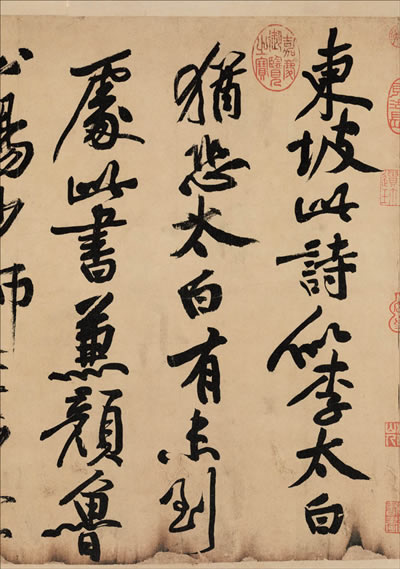 東坡此詩似李太白
猶恐太白有未到
處此書兼顏魯
公楊少師
嘉慶御覽之寶